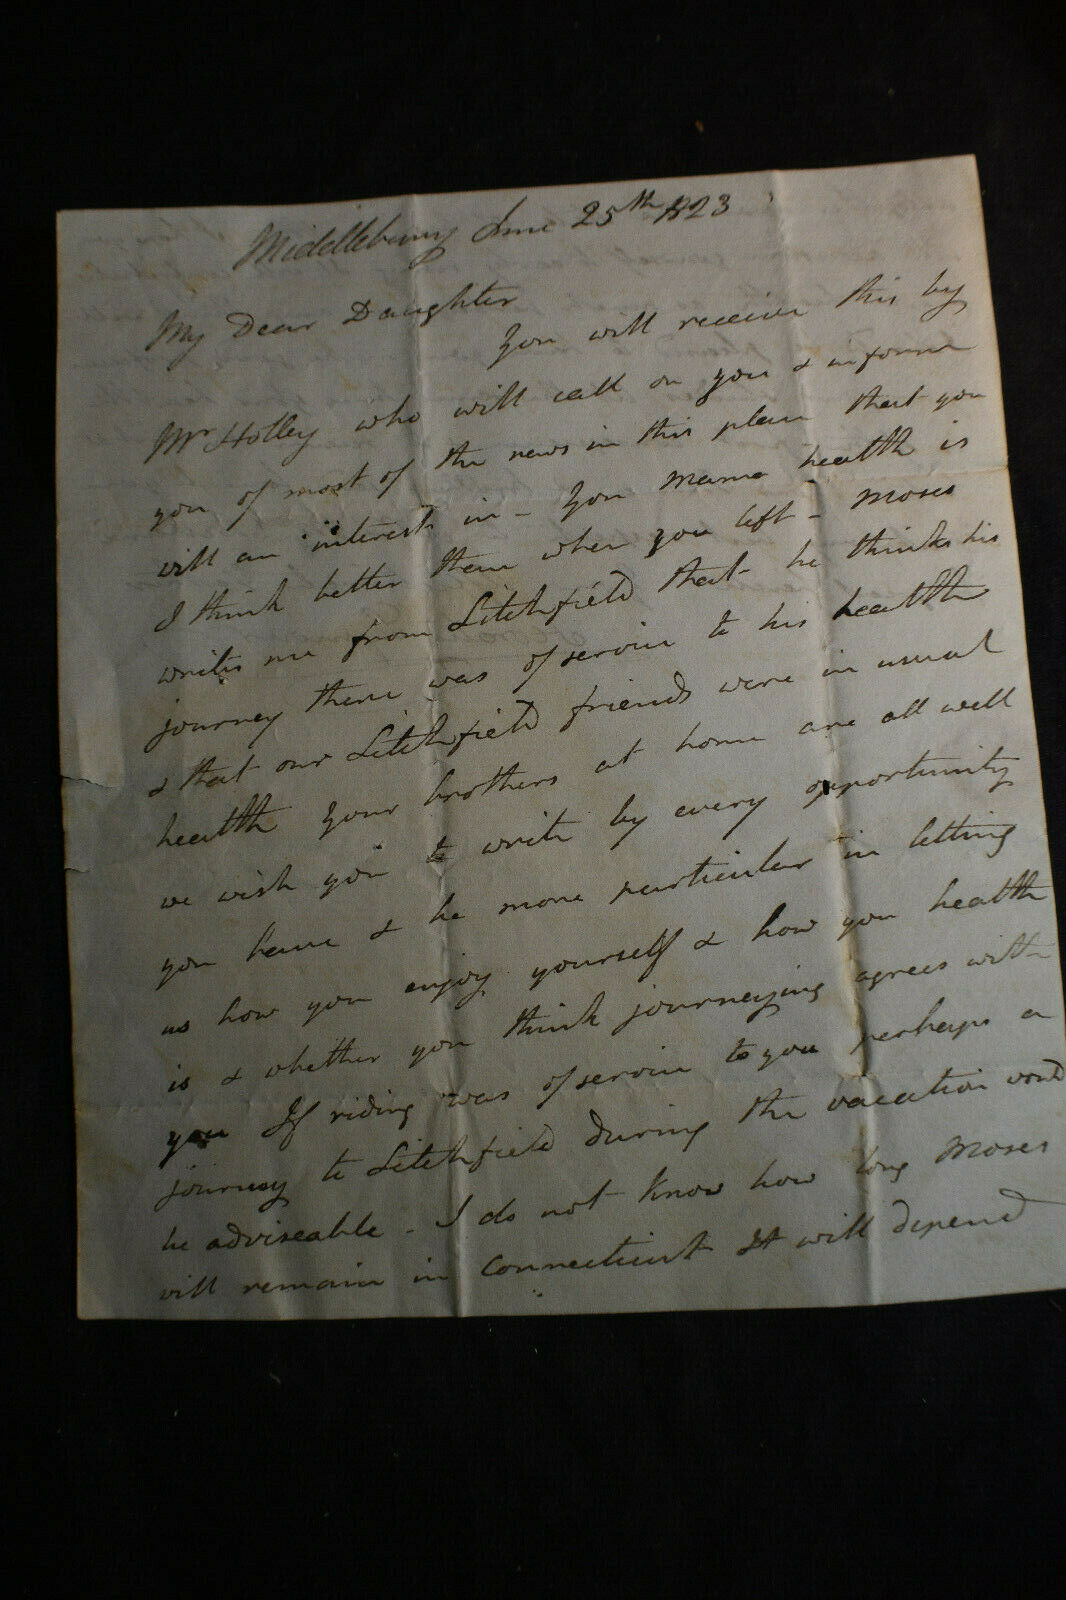 Middlebury June 25th 1823
My Dear Daughter
You will receive this by
Mr Holley who will call on you & informe
you of most of the news in this place that you
will an interest in - You Mama health is
I think better then when you left - Moses
writes me from Litchfield that he thinks his
journey there was of service to his health
& that our Litchfield friends were in usual
health Your brothers at home are all well
we wish you to write by every opportunity
you have & be more particular in letting
us how you enjoy yourself & how you health
is & whether you think journeying agrees with
you If riding was of service to you perhaps a
journey to Litchfield during the vacation would
be adviseable - I do not know how long Moses
will remain in Connecticut It will depend